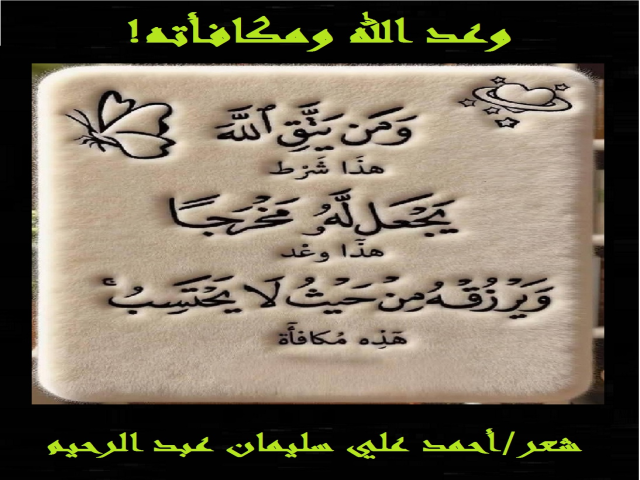 وعد الله ومكافأته!
وَمَن يَتَّقِ ٱللَّهَ
هذَا شَرْط
يَجْعَل لَّهُۥ مَخْرَجًا
هذَا وعْد
وَيَرْزُقْهُ مِنْ حَيْثُ لَا يَحْتَسِبُ ۚ
هَذِه مُكافأَة
شعر/أحمد علي سليمان عبد الرحيم